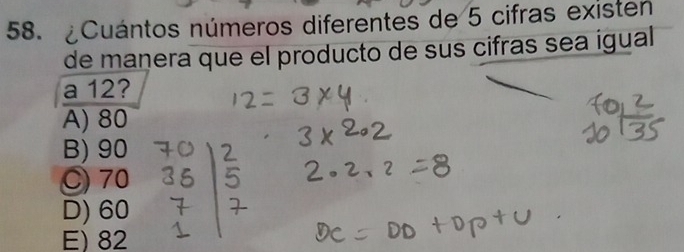 58. ¿Cuántos números diferentes de 5 cifras existen
de manera que el producto de sus cifras sea igual
a 12?
12 = 3 x 4.
A) 80
3 x 2.2
70 | 2
B) 90
70 | 2
2.2.2 = 8
C) 70
35 | 5
D) 60
7 | 7
1
DC = DD + DP + U
E) 82